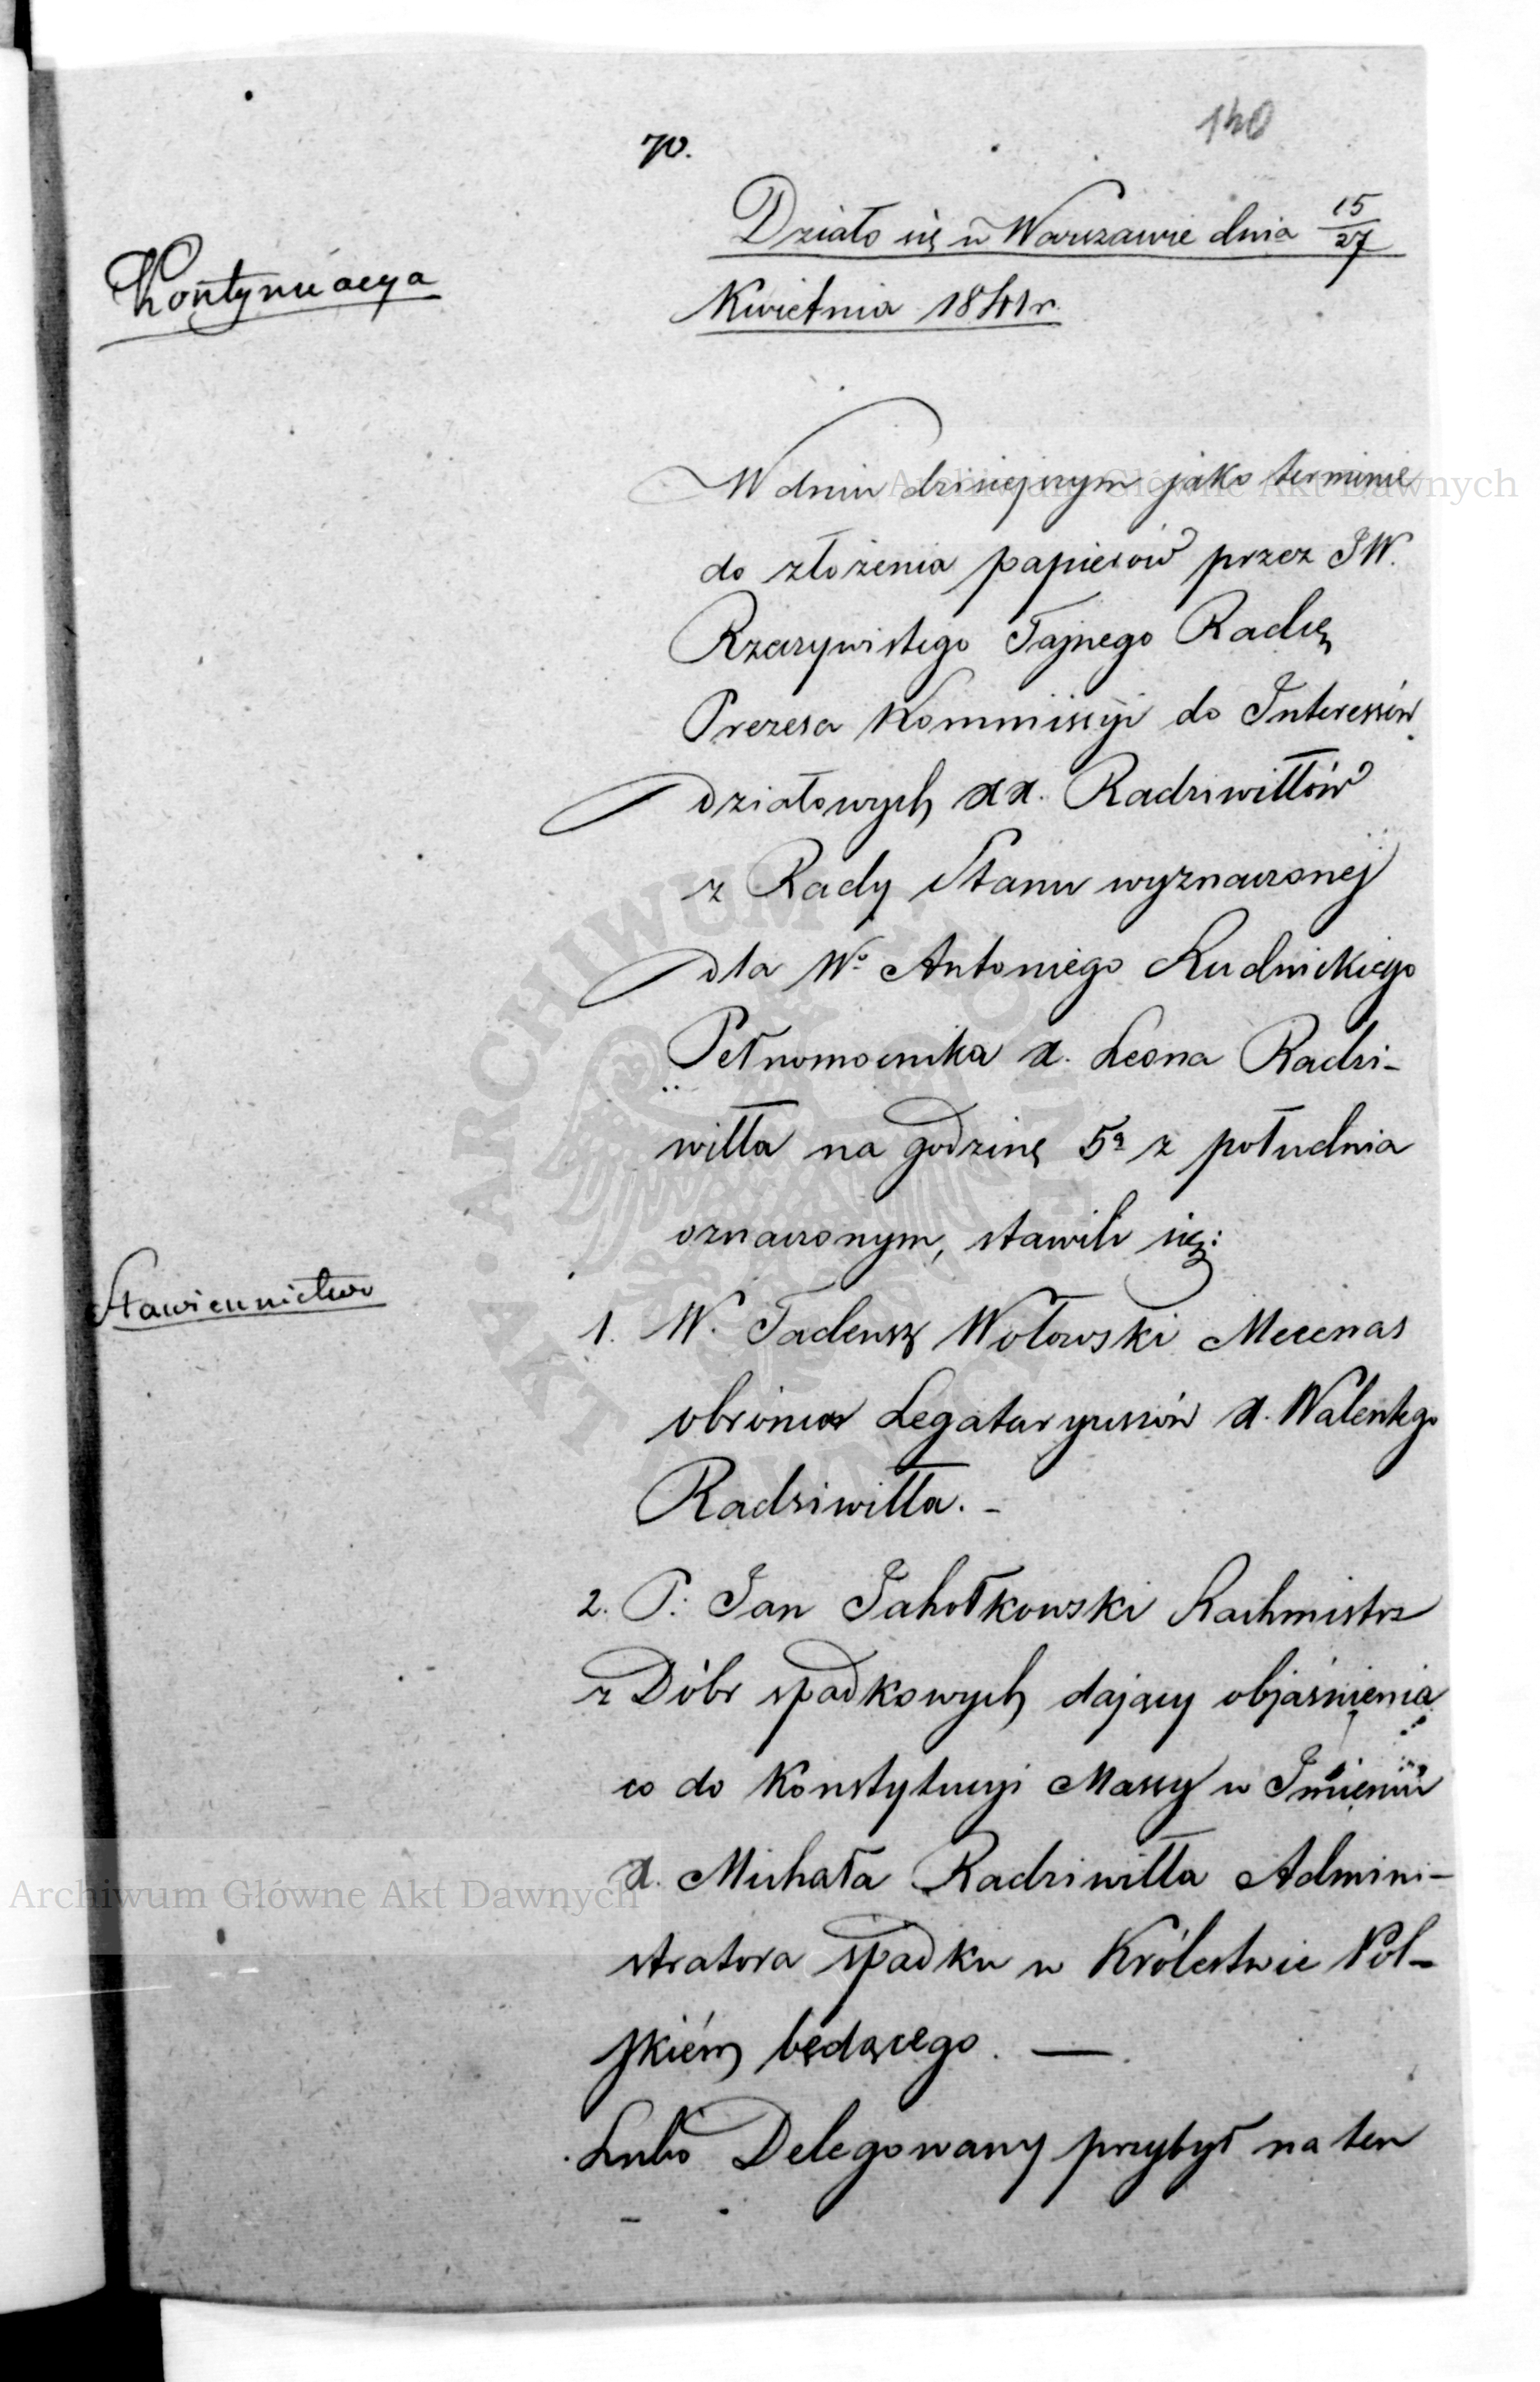 140
70.
Działo się w Warszawie dnia 15/27
Kontynuacya
Kwietnia 1841 r.
W dniu dzisiejszym jako terminie
do złożenia papierów przez JW.
Rzeczywistego Tajnego Radcę
Prezesa Kommissyi do Interessów
działowych XX. Radziwiłłów
z Rady Stanu wyznaczonej
dla Wo. Antoniego Rudnickiego
Pełnomocnika X. Leona Radzi-
wiłła na godzinę 5a z południa
oznaczonym, stawili się:
Stawiennictwo
1. W. Tadeusz Wołowski Mecenas
obrońca Legataryuszów X. Walentego
Radziwiłła. -
2. P: Jan Jahołkowski Rachmistrz
z Dóbr spadkowych dający objaśnienia
co do Konstytucyi Massy w Imieniu
X. Michała Radziwiłła Admini-
stratora spadku w Królestwie Pol-
skiém będącego. —
Lubo Delegowany przybył na ten
Archiwum Główne Akt Dawnych
Archiwum Główne Akt Dawnych
ARCHIWUM GŁÓWNE AKT DAWNYCH